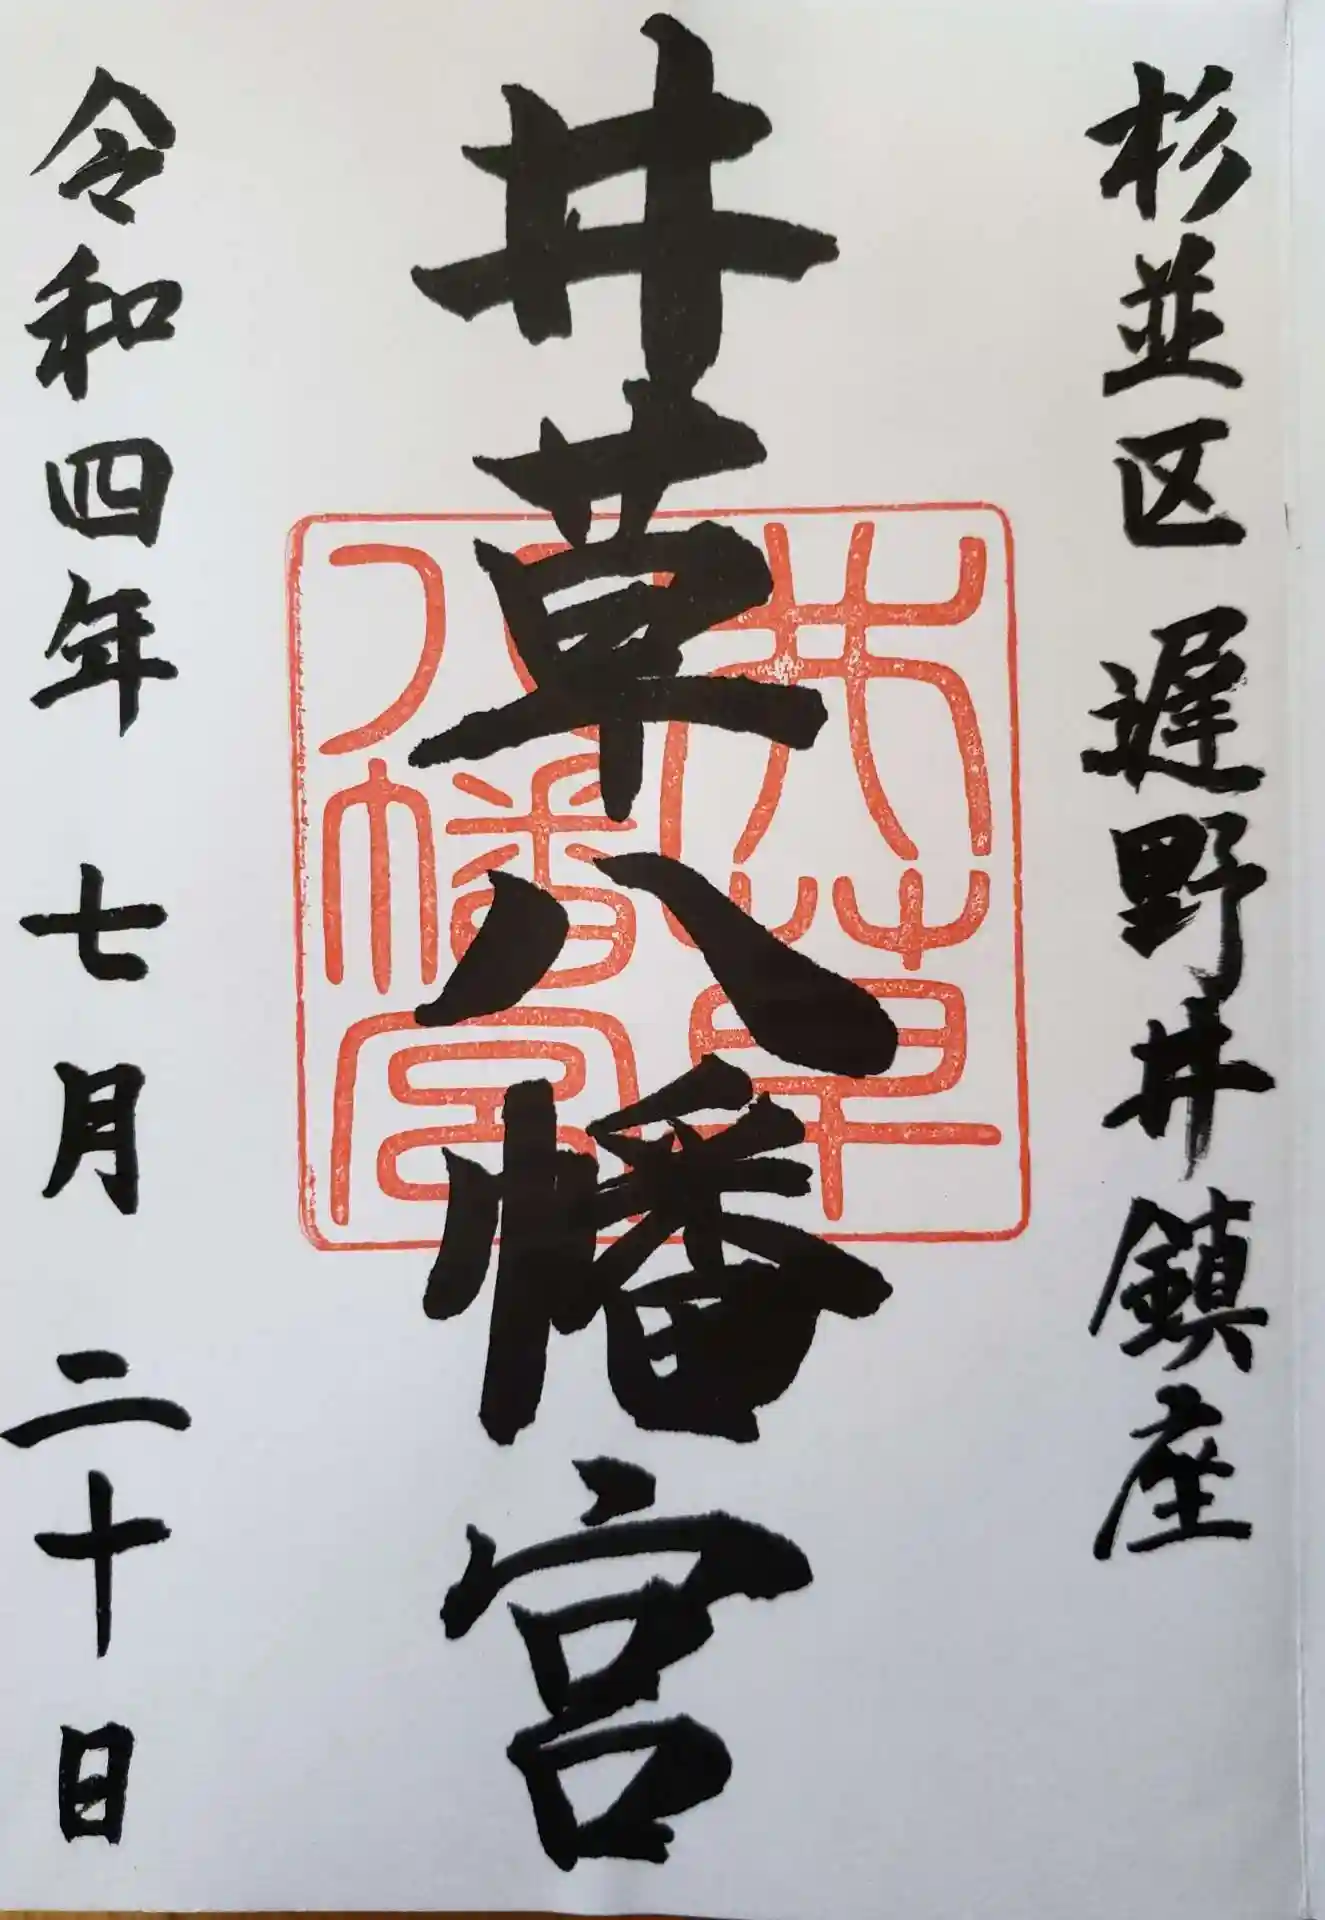 杉並区遅野井鎮座
井草八幡宮
井草八幡宮
令和四年七月二十日